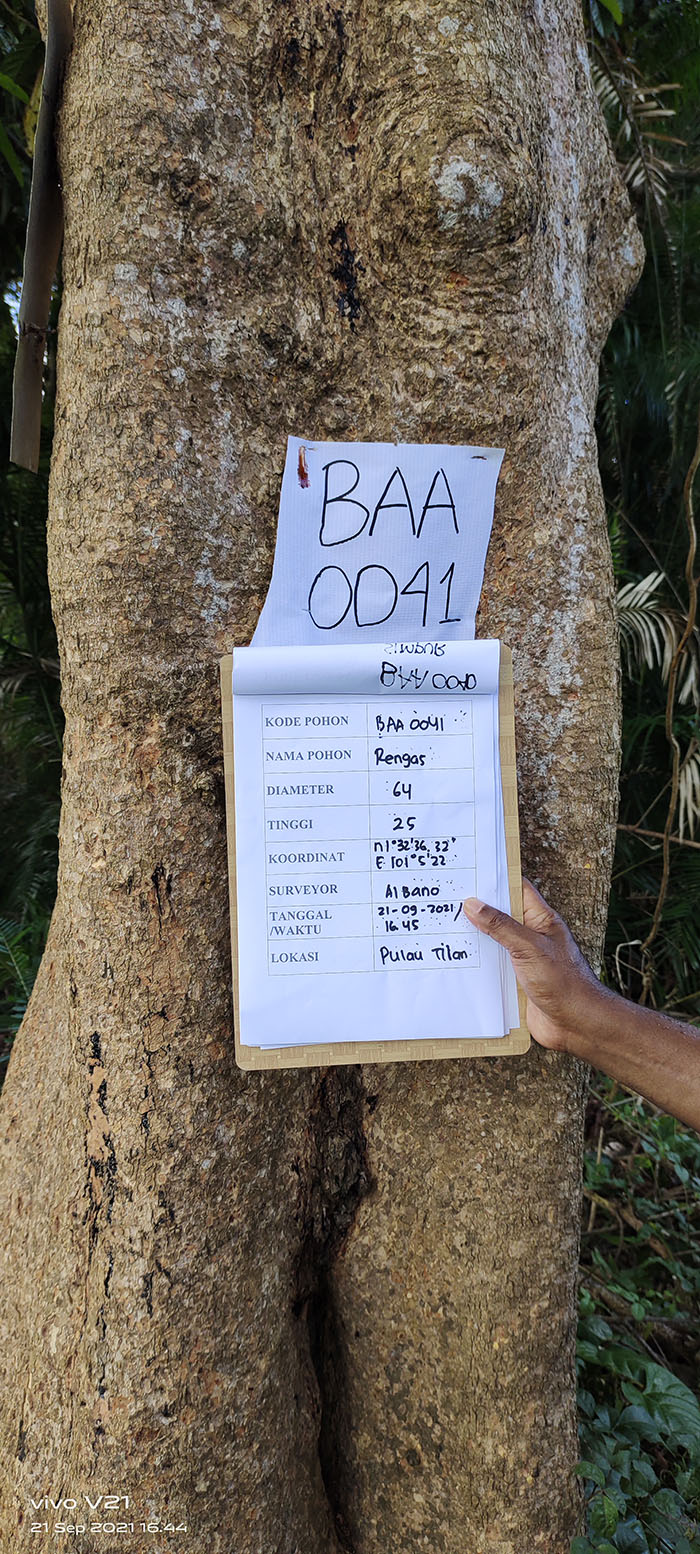 BAA
0041
BAA 0040
KODE POHON BAA 0041
NAMA POHON Rengas
DIAMETER 64
TINGGI 25
KOORDINAT n 1°32'36,32"
E 101°5'22
SURVEYOR Albano
TANGGAL 21-09-2021/
/WAKTU 16.45
LOKASI Pulau Tilan
vivo V21
21 Sep 2021 16:44